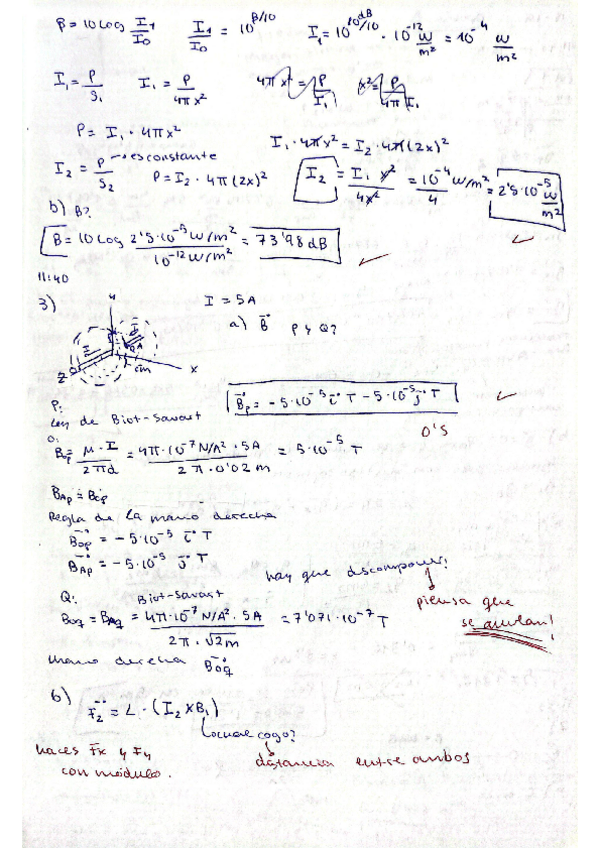 β = 10 log I1/I0   I1/I0 = 10^β/10   I1 = 10^80dB/10 · 10^-12 w/m² = 10^-4 w/m²
I1 = P/S1   I1 = P/4πx²   4πx² = P/I1   x² = P/4π I1
P = I1 · 4πx²   I1 · 4πx² = I2 · 4π(2x)²
I2 = P/S2 → es constante   P = I2 · 4π(2x)²   I2 = I1 x²/4x² = 10^-4 w/m²/4 = 2'5·10^-5 w/m²
b) B?
B = 10 log 2'5·10^-5 w/m²/10^-12 w/m² = 73'98 dB
11:40
3)   I = 5A
a) B⃗ P y Q?
Y
I
Z
X
cm
P:
Ley de Biot-Savart   B⃗p = -5·10^-5 i⃗ T - 5·10^-5 j⃗ T
0'5
O:
Bop = μ·I/2πd = 4π·10^-7 N/A² · 5A/2π·0'02 m = 5·10^-5 T
BAp = Bop
Regla de la mano derecha
B⃗op = -5·10^-5 i⃗ T
B⃗Ap = -5·10^-5 j⃗ T
hay que descomponer!
Q:   Biot-Savart
BoQ = BAQ = 4π·10^-7 N/A² · 5A/2π·√2 m = 7'071·10^-7 T
piensa que
se anulan!
mano derecha B⃗oQ
b)
F⃗2 = L · (I2 x B1)
cual cojo?
haces Fx y Fy   distancia entre ambos
con módulo.